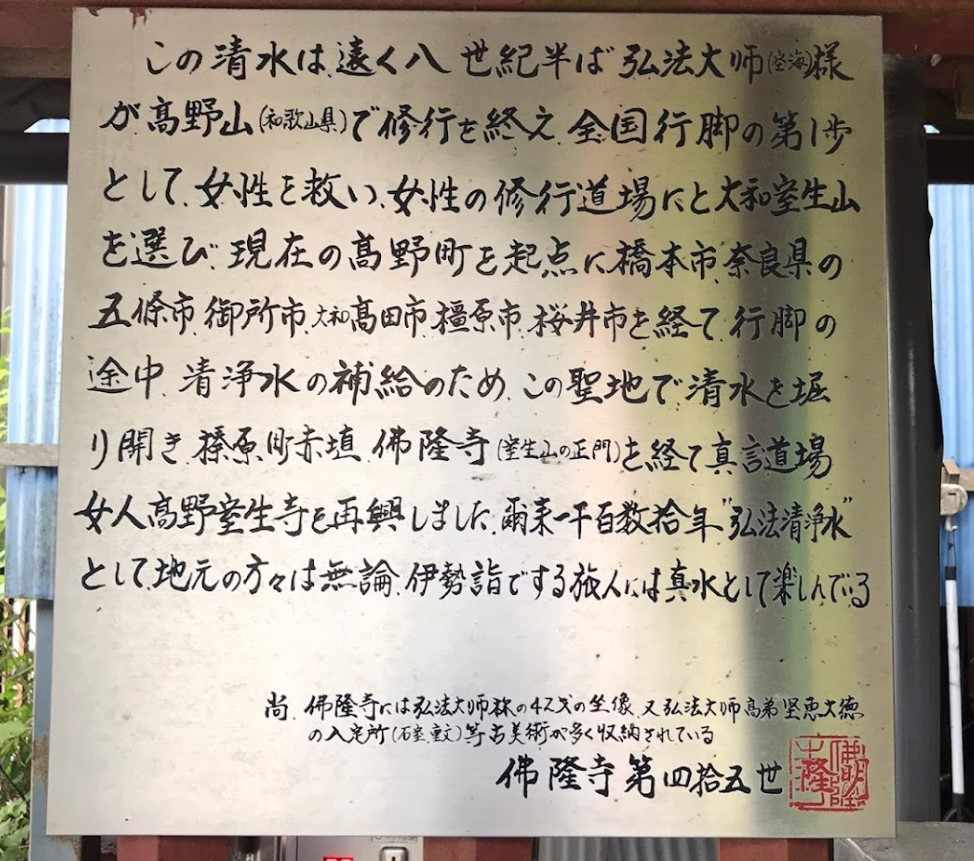 この清水は、遠く八世紀半ば弘法大師(空海)様
が、高野山(和歌山県)で修行を終え、全国行脚の第1歩
として、女性を救い、女性の修行道場にと大和室生山
を選び、現在の高野町を起点に、橋本市、奈良県の
五條市、御所市、大和高田市、橿原市、桜井市を経て、行脚の
途中、清浄水の補給のため、この聖地で清水を堀
り開き、榛原町赤埴、佛隆寺(室生山の正門)を経て真言道場
女人高野室生寺を再興しました、爾来一千百数拾年“弘法清浄水”
として、地元の方々は無論、伊勢詣でする旅人には真水として楽しんでいる
尚、佛隆寺には弘法大師様の42才の坐像、又弘法大師高弟堅恵大徳
の入定所(石室、重文)等古美術が多く収納されている
佛隆寺第四拾五世